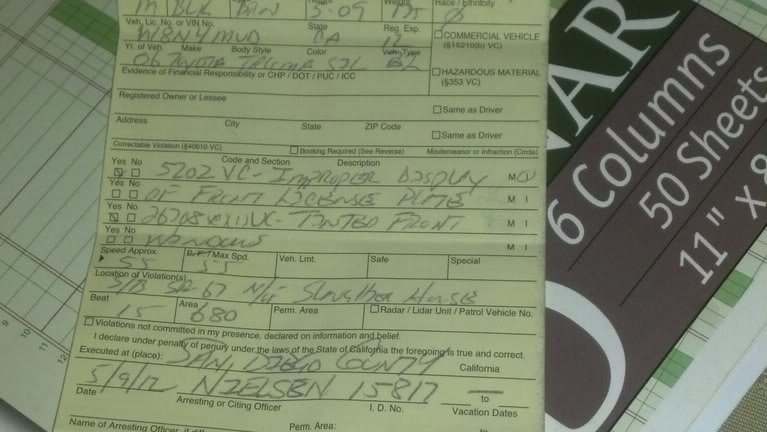 Weight Race / Ethnicity
M BLK BRN 5-09 175
Veh. Lic. No. or VIN No. State Reg. Exp.
W8N4MUD CA 12
COMMERCIAL VEHICLE
(§15210(b) VC)
Yr. of Veh. Make Body Style Color Veh. Type
06 TOYOTA TACOMA SIL
HAZARDOUS MATERIAL
(§353 VC)
Evidence of Financial Responsibility or CHP / DOT / PUC / ICC
Registered Owner or Lessee
Same as Driver
Address City State ZIP Code
Same as Driver
Correctable Violation (§40610 VC) Booking Required (See Reverse) Misdemeanor or Infraction (Circle)
Yes No Code and Section Description
5202 VC- IMPROPER DISPLAY M I
Yes No
OF FRONT LICENSE PLATE M I
Yes No
VC- TINTED FRONT M I
Yes No
WINDOWS M I
Speed Approx. P.F./ Max Spd. Veh. Lmt. Safe Special
55 55
Location of Violation(s)
S/B SR-67 N/ Slaughter House
Beat Area Perm. Area Radar / Lidar Unit / Patrol Vehicle No.
15 680
Violations not committed in my presence, declared on information and belief.
I declare under penalty of perjury under the laws of the State of California the foregoing is true and correct.
Executed at (place): SAN DIEGO COUNTY California
5/9/12 NIELSEN 15817
to
Date Arresting or Citing Officer I. D. No. Vacation Dates
to
Name of Arresting Officer, if Perm. Area:
NAR
6 Columns
50 Sheets
11" x 8
9
10
11
12